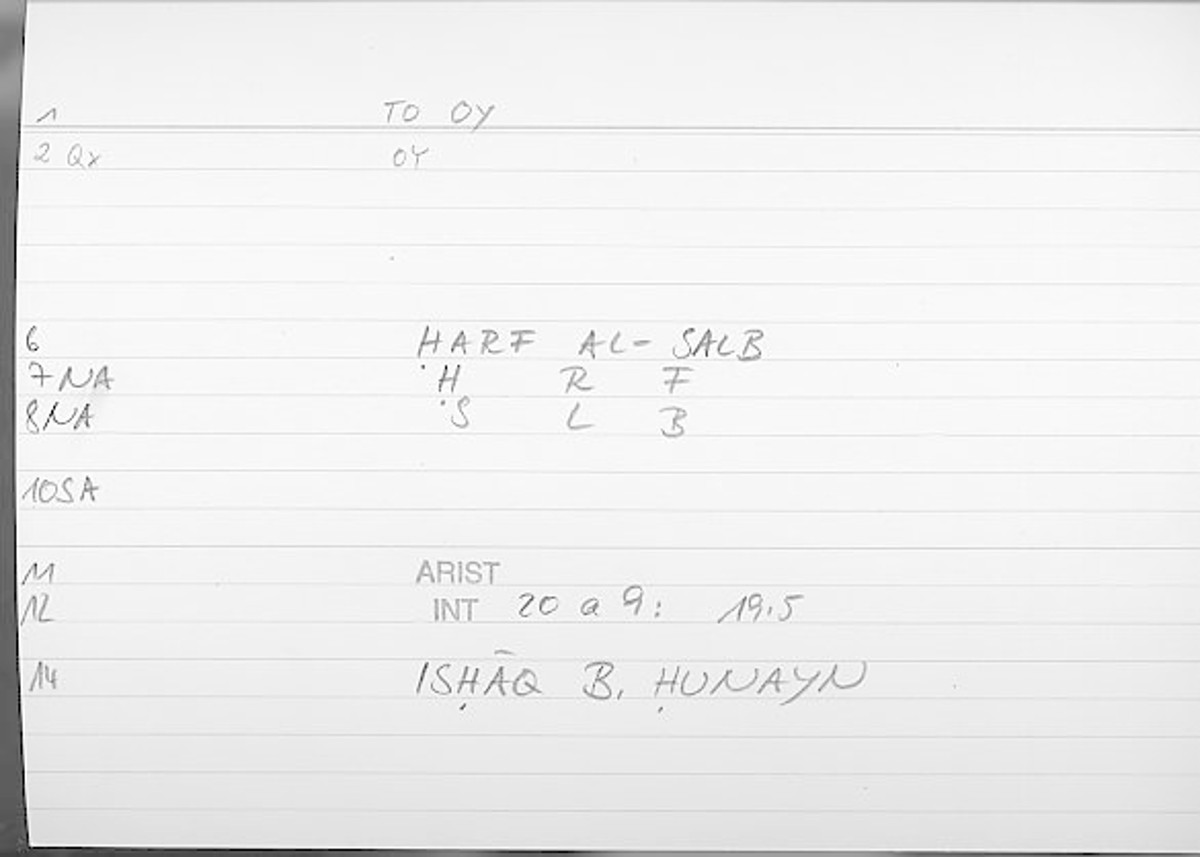 1 TO OY
2 Qx OY
6 ḤARF AL-SALB
7 NA Ḥ R F
8 NA S L B
10 SA
11 ARIST
12 INT 20 a 9: 19,5
14 ISḤĀQ B. ḤUNAYN